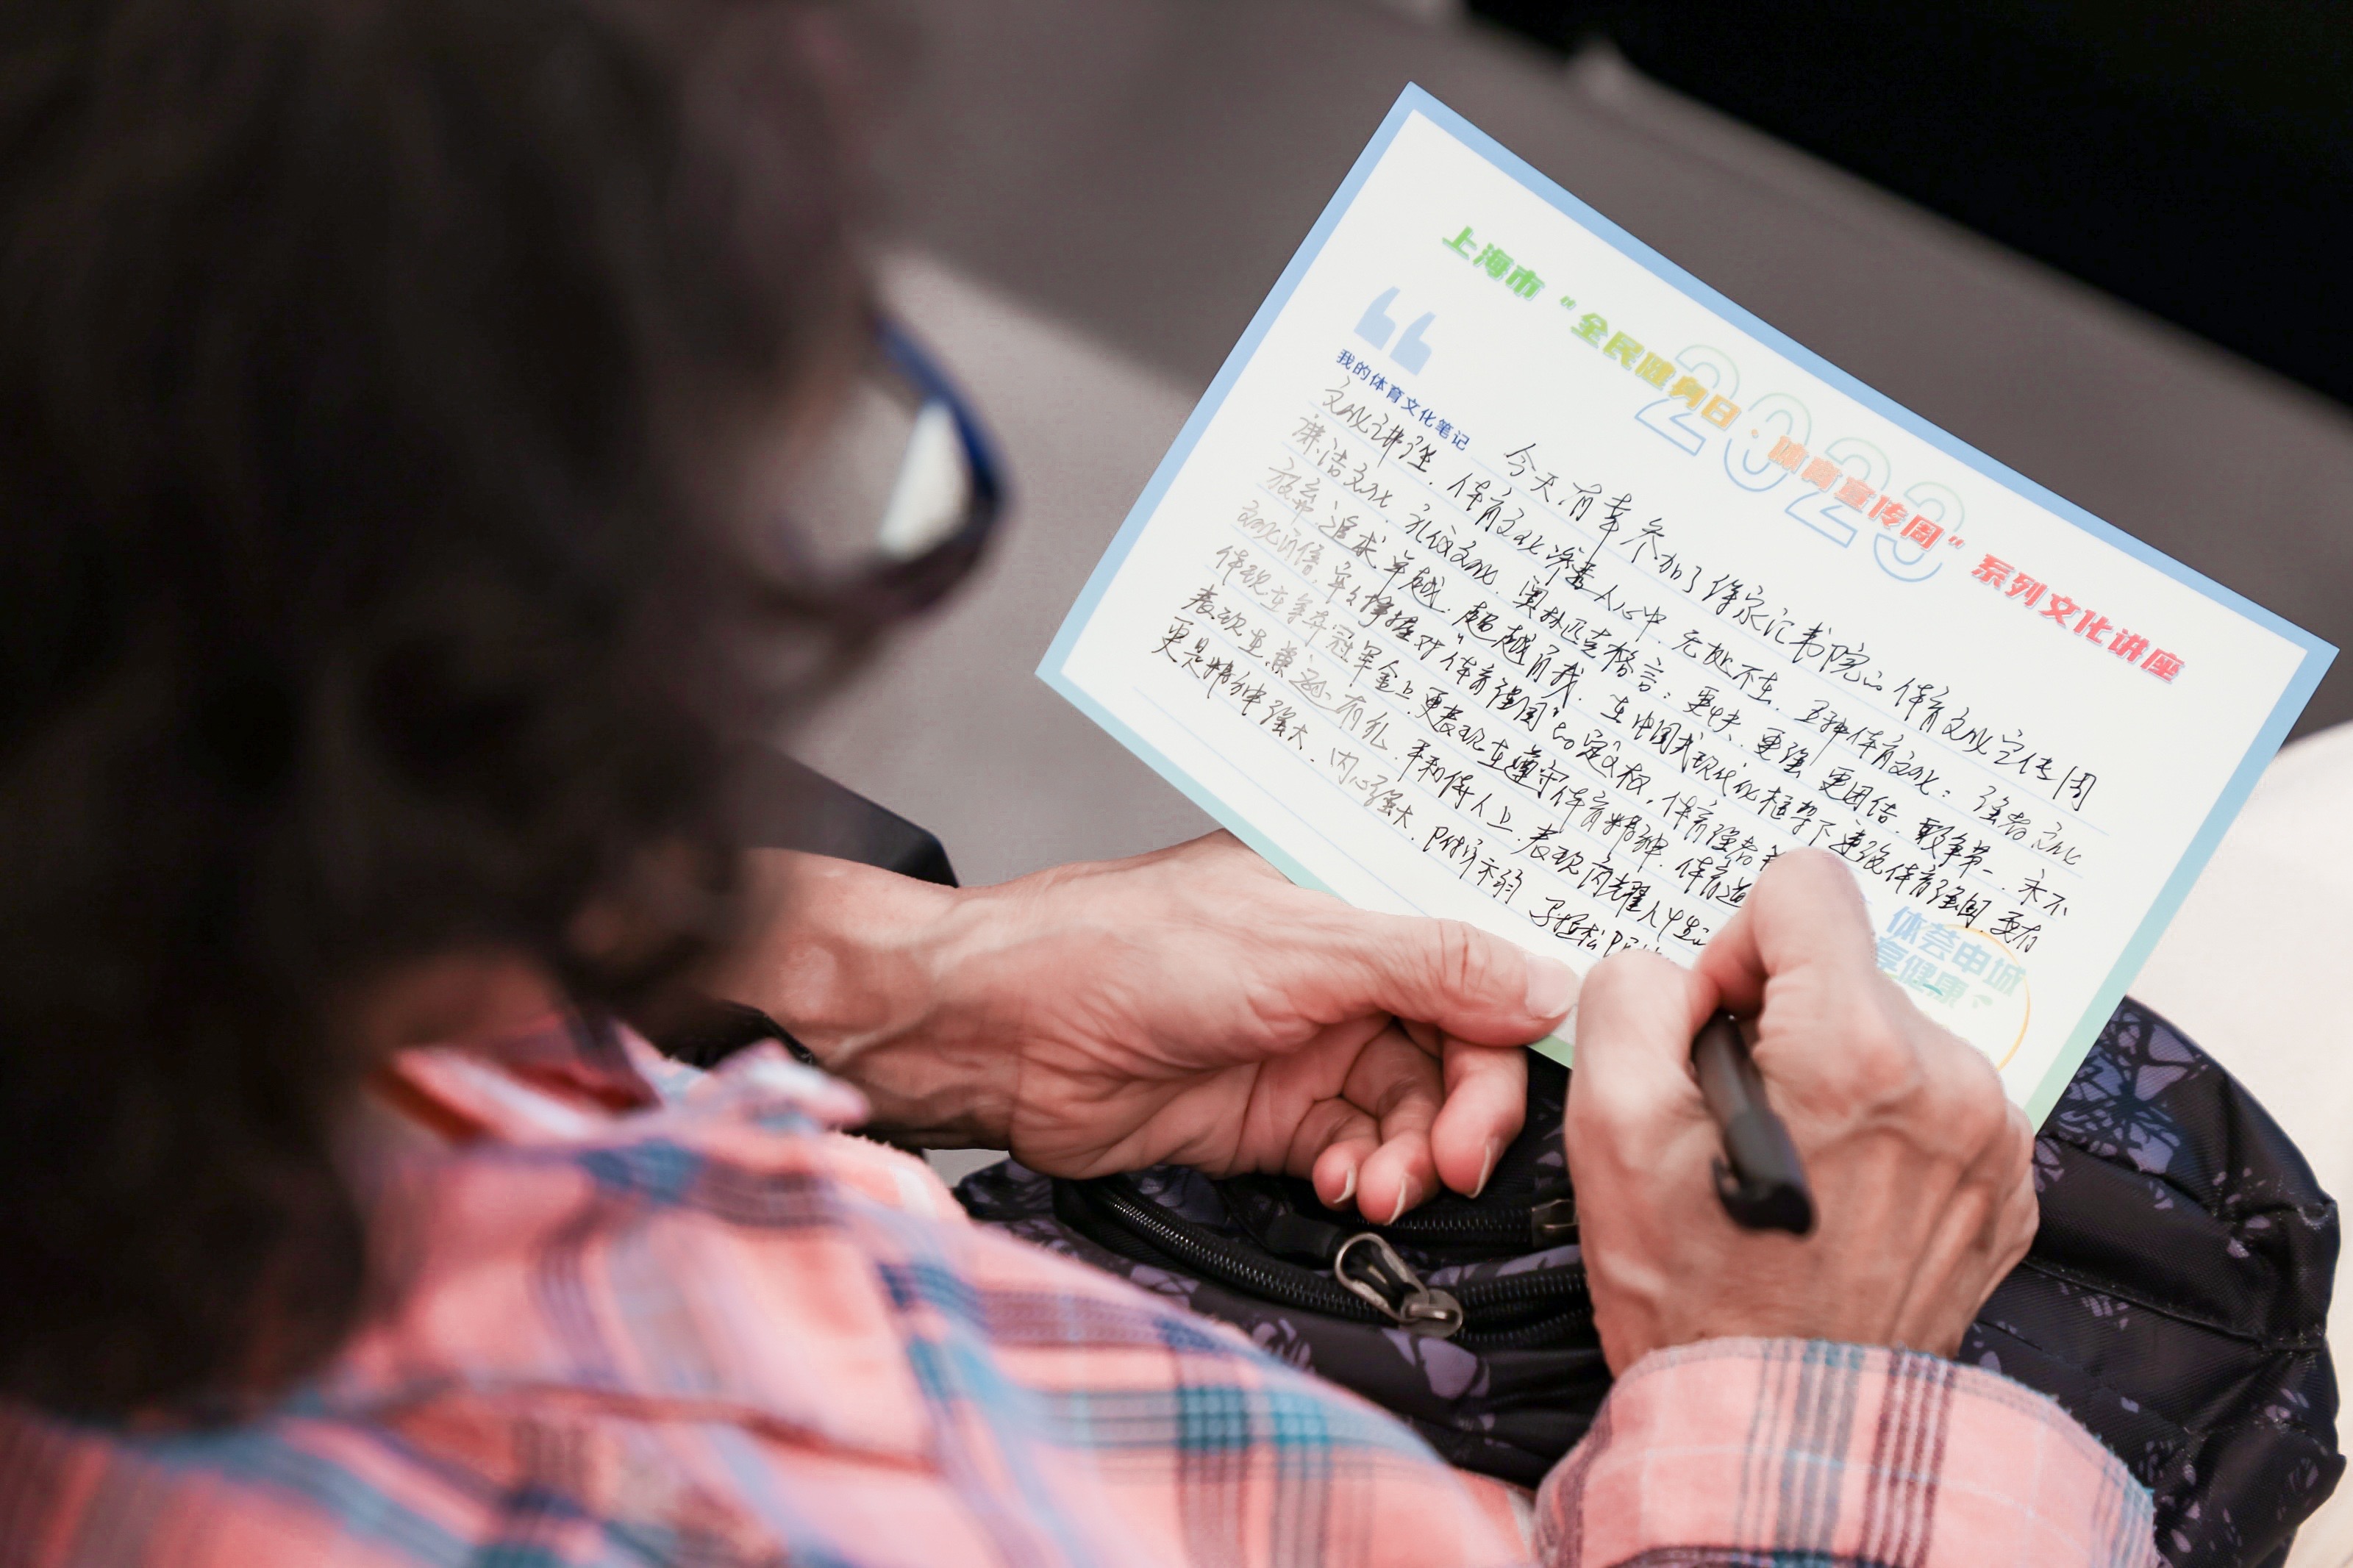 上海市“全民健身日·体育宣传周”系列文化讲座
2023
我的体育文化笔记
今天有幸参加了徐家汇书院的体育文化宣传周
文化讲座. 体育文化渗透人心中. 无处不在. 五种体育文化: 强者文化
廉洁文化. 礼仪文化. 奥林匹克格言: 更快. 更强 更团结. 敢争第一. 永不
放弃. 追求卓越. 超越自我. 在中国式现代化框架下建设体育强国. 更有
文化自信, 牢牢掌握对“体育强国”的定义权, 体育强者
体现在夺冠军金上. 更表现在遵守体育精神. 体育道
表现在 有礼. 平和待人上. 表现闪耀人
更是精神强大. 内心强大.
体荟申城
享健康